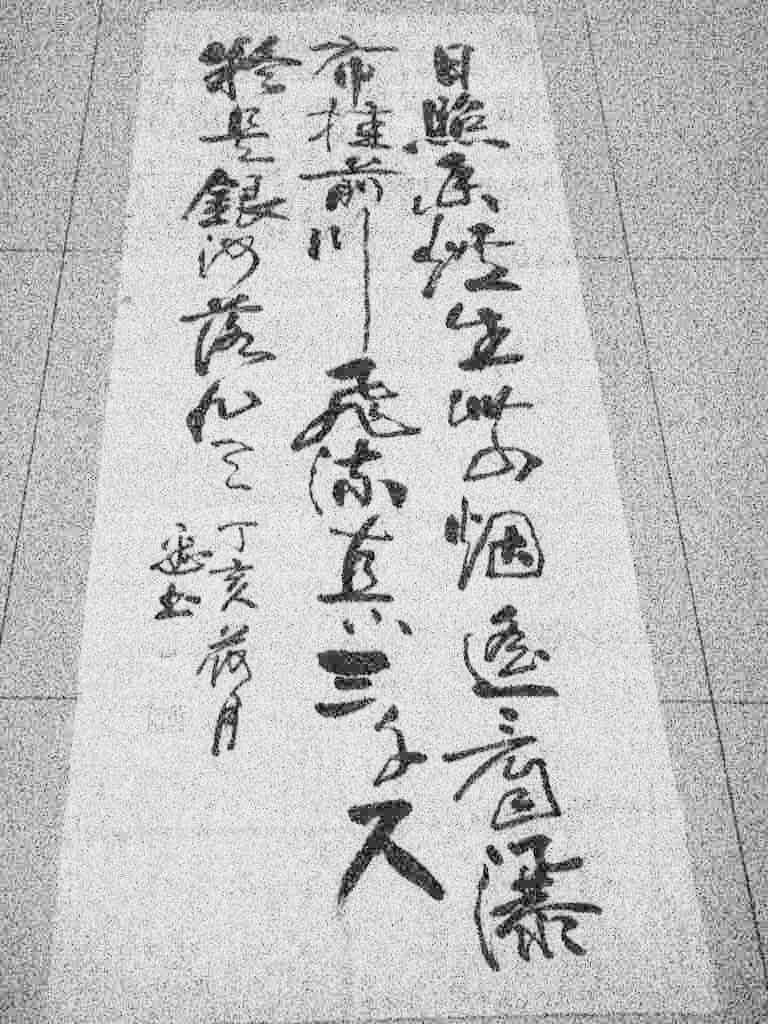 日照香爐生紫烟遥看瀑
布挂前川飛流直下三千尺
疑是銀河落九天
丁亥荷月
书